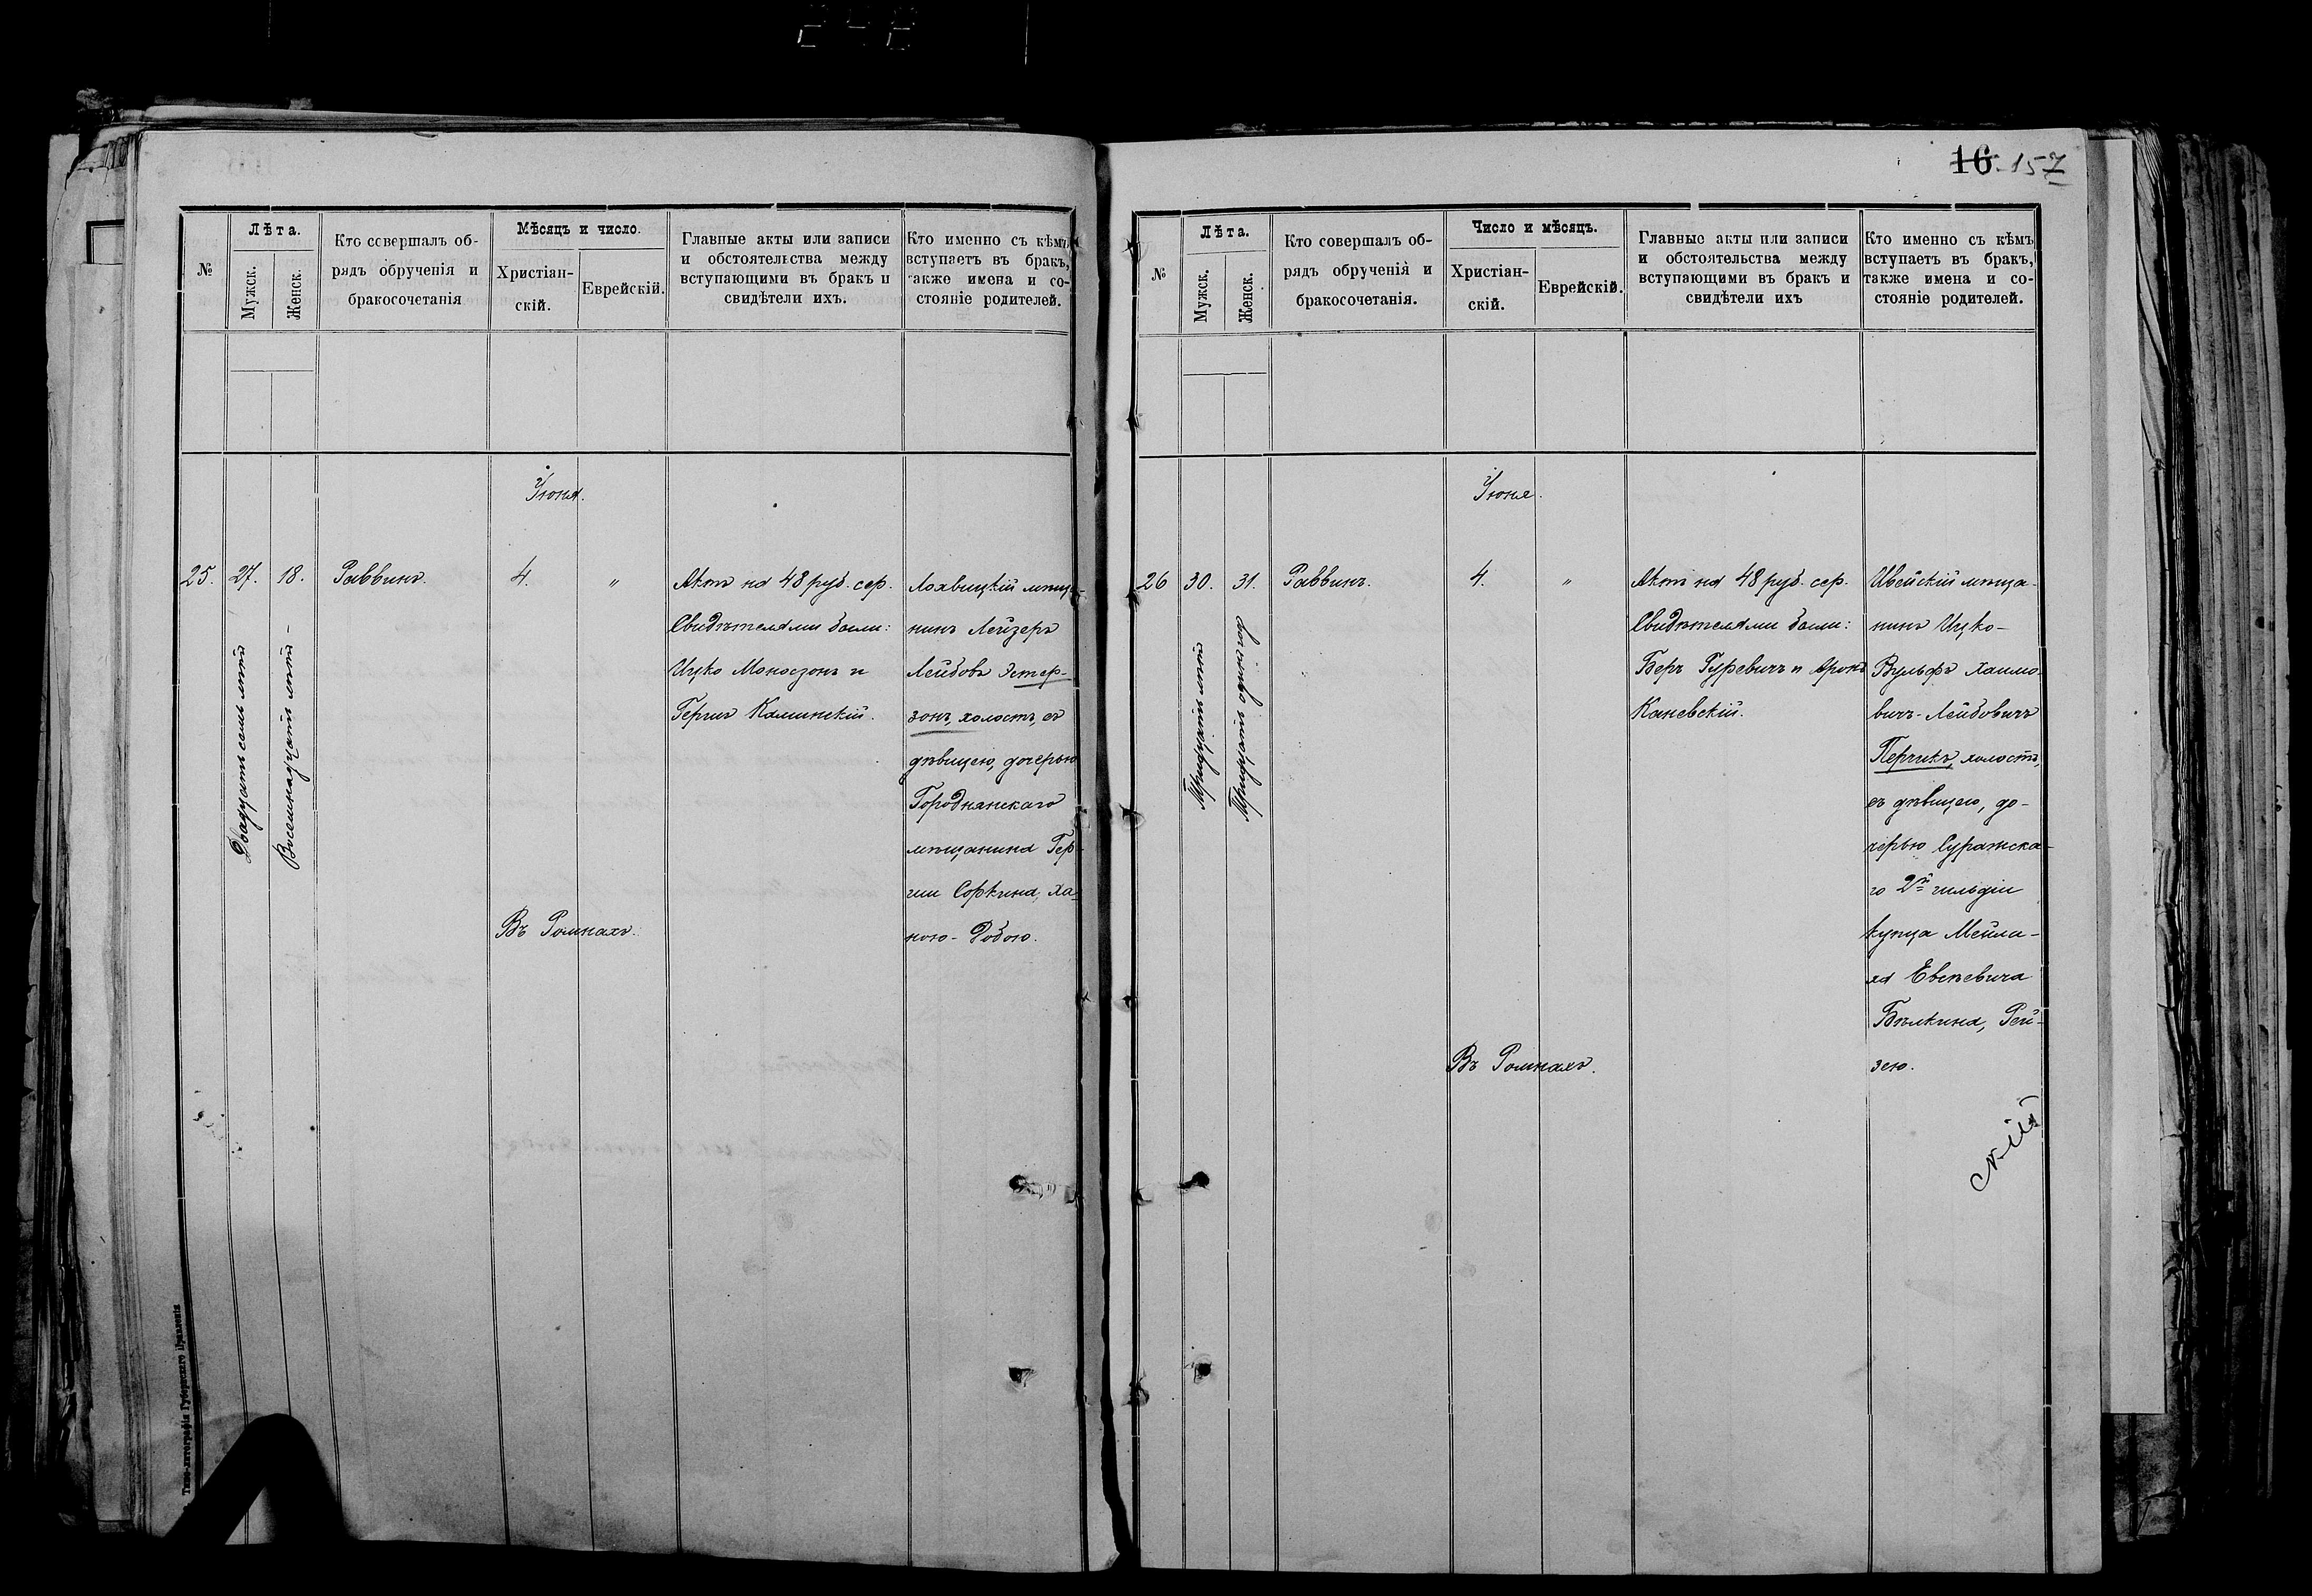 16 157
№
Лѣта.
Мужск.
Женск.
Кто совершалъ об-
рядъ обрученія и
бракосочетанія
Мѣсяцъ и число.
Христіан-
скій.
Еврейскій.
Главные акты или записи
и обстоятельства между
вступающими въ бракъ и
свидѣтели ихъ.
Кто именно съ кѣмъ
вступаетъ въ бракъ,
также имена и со-
стояніе родителей.
Іюня.
25.
27.
Двадцать семь лѣтъ
18.
Восемнадцать лѣтъ –
Раввинъ.
4.
"
Актъ на 48 руб. сер.
Свидѣтелями были:
Ицко Моносзонъ и
Гершъ Калинскій.
нинъ Лейзеръ
Лейбовъ Эстер-
зонъ, холостъ, съ
дѣвицею, дочерью
Городнянскаго
мѣщанина Гер-
ши Соркина, Ха-
ною-Добою.
Въ Ромнахъ.
Типо-литографія Губернскаго Правленія
№
Лѣта.
Мужск.
Женск.
Кто совершалъ об-
рядъ обрученія и
бракосочетанія.
Число и мѣсяцъ.
Христіан-
скій.
Еврейскій.
Главные акты или записи
и обстоятельства между
вступающими въ бракъ и
свидѣтели ихъ
Кто именно съ кѣмъ
вступаетъ въ бракъ,
также имена и со-
стояніе родителей.
Іюня.
26
30.
Тридцать лѣтъ
31.
Тридцать одинъ годъ
Раввинъ.
4.
"
Актъ на 48 руб. сер.
Свидѣтелями были:
Беръ Гуревичъ и Аронъ
Каневскій.
Ивейскій мѣща-
нинъ Ицко-
Вульфъ Хаимо-
вичъ-Лейбовичъ
Перчикъ, холостъ,
съ дѣвицею, до-
черью Суражска-
го 2й гильдіи
купца Мейла-
ха Евсѣевича
Бѣлкина, Рей-
зею.
Въ Ромнахъ.
скій